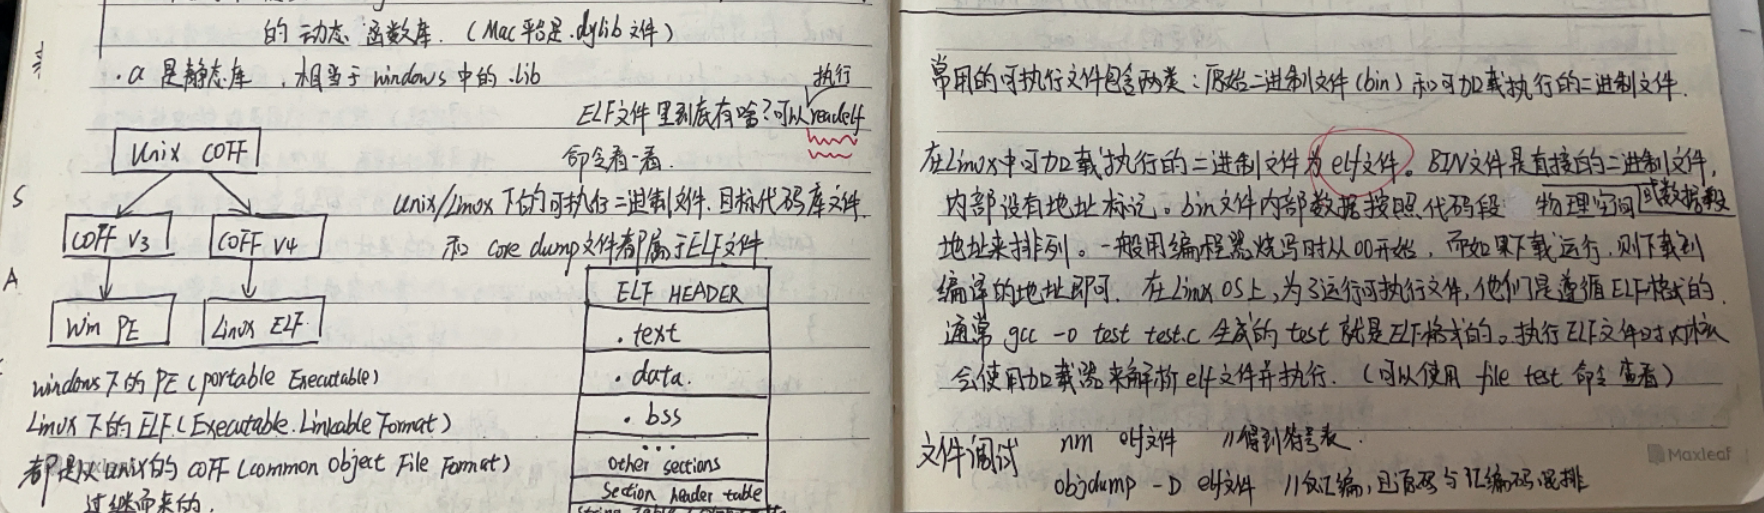 的 动态 函数库. (Mac平台是.dylib 文件)
.a 是静态库 , 相当于 windows 中的 .lib
执行
ELF文件 里到底有啥? 可以 readelf
命令看一看.
Unix COFF
COFF V3
COFF V4
Win PE
Linux ELF
Unix/Linux 下的可执行二进制文件. 目标代码库文件.
和 core dump文件都属于ELF文件.
ELF HEADER
.text
.data.
.bss
...
other sections
Section header table
windows下的 PE (portable Executable)
Linux 下的 ELF. (Executable. Linkable Format)
都是从 unix的 COFF (common object File Format)
过继而来的.
S
A
常用的可执行文件包含两类:原始二进制文件(bin) 和可加载执行的二进制文件.
在Linux中可加载执行的二进制文件为elf文件。BIN文件是直接的二进制文件,
内部没有地址标记。bin文件内部数据按照代码段 或数据段 物理空间
地址来排列。一般用编程器烧写时从00开始, 而如果下载运行,则下载到
编译的地址即可. 在Linux OS上,为了运行可执行文件,他们是遵循ELF格式的.
通常 gcc -o test test.c 生成的 test 就是ELF格式的。执行ELF文件时内核
会使用加载器来解析elf文件并执行. (可以使用 file test 命令 查看)
文件调试 nm elf文件 //得到符号表.
objdump -D elf文件 //反汇编,且源码与汇编码混排
Maxleaf